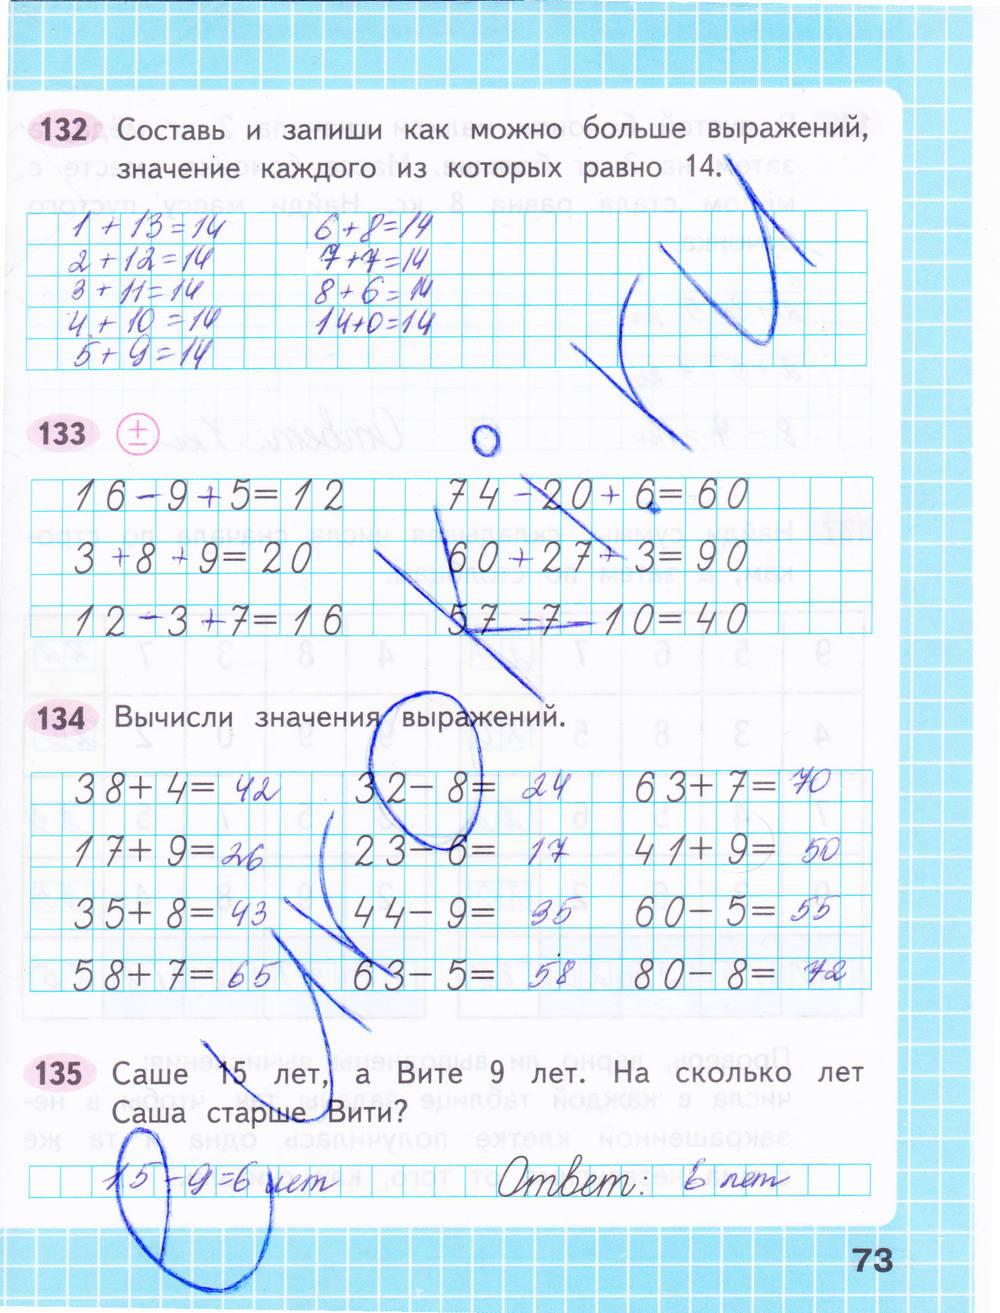 132 Составь и запиши как можно больше выражений,
значение каждого из которых равно 14.
1 + 13 = 14 6 + 8 = 14
2 + 12 = 14 7 + 7 = 14
3 + 11 = 14 8 + 6 = 14
4 + 10 = 14 14 + 0 = 14
5 + 9 = 14
133 ±
16 − 9 + 5 = 12 74 − 20 + 6 = 60
3 + 8 + 9 = 20 60 + 27 + 3 = 90
12 − 3 + 7 = 16 57 − 7 − 10 = 40
134 Вычисли значения выражений.
38 + 4 = 42 32 − 8 = 24 63 + 7 = 70
17 + 9 = 26 23 − 6 = 17 41 + 9 = 50
35 + 8 = 43 44 − 9 = 35 60 − 5 = 55
58 + 7 = 65 63 − 5 = 58 80 − 8 = 72
135 Саше 15 лет, а Вите 9 лет. На сколько лет
Саша старше Вити?
15 − 9 = 6 лет Ответ: 6 лет
73